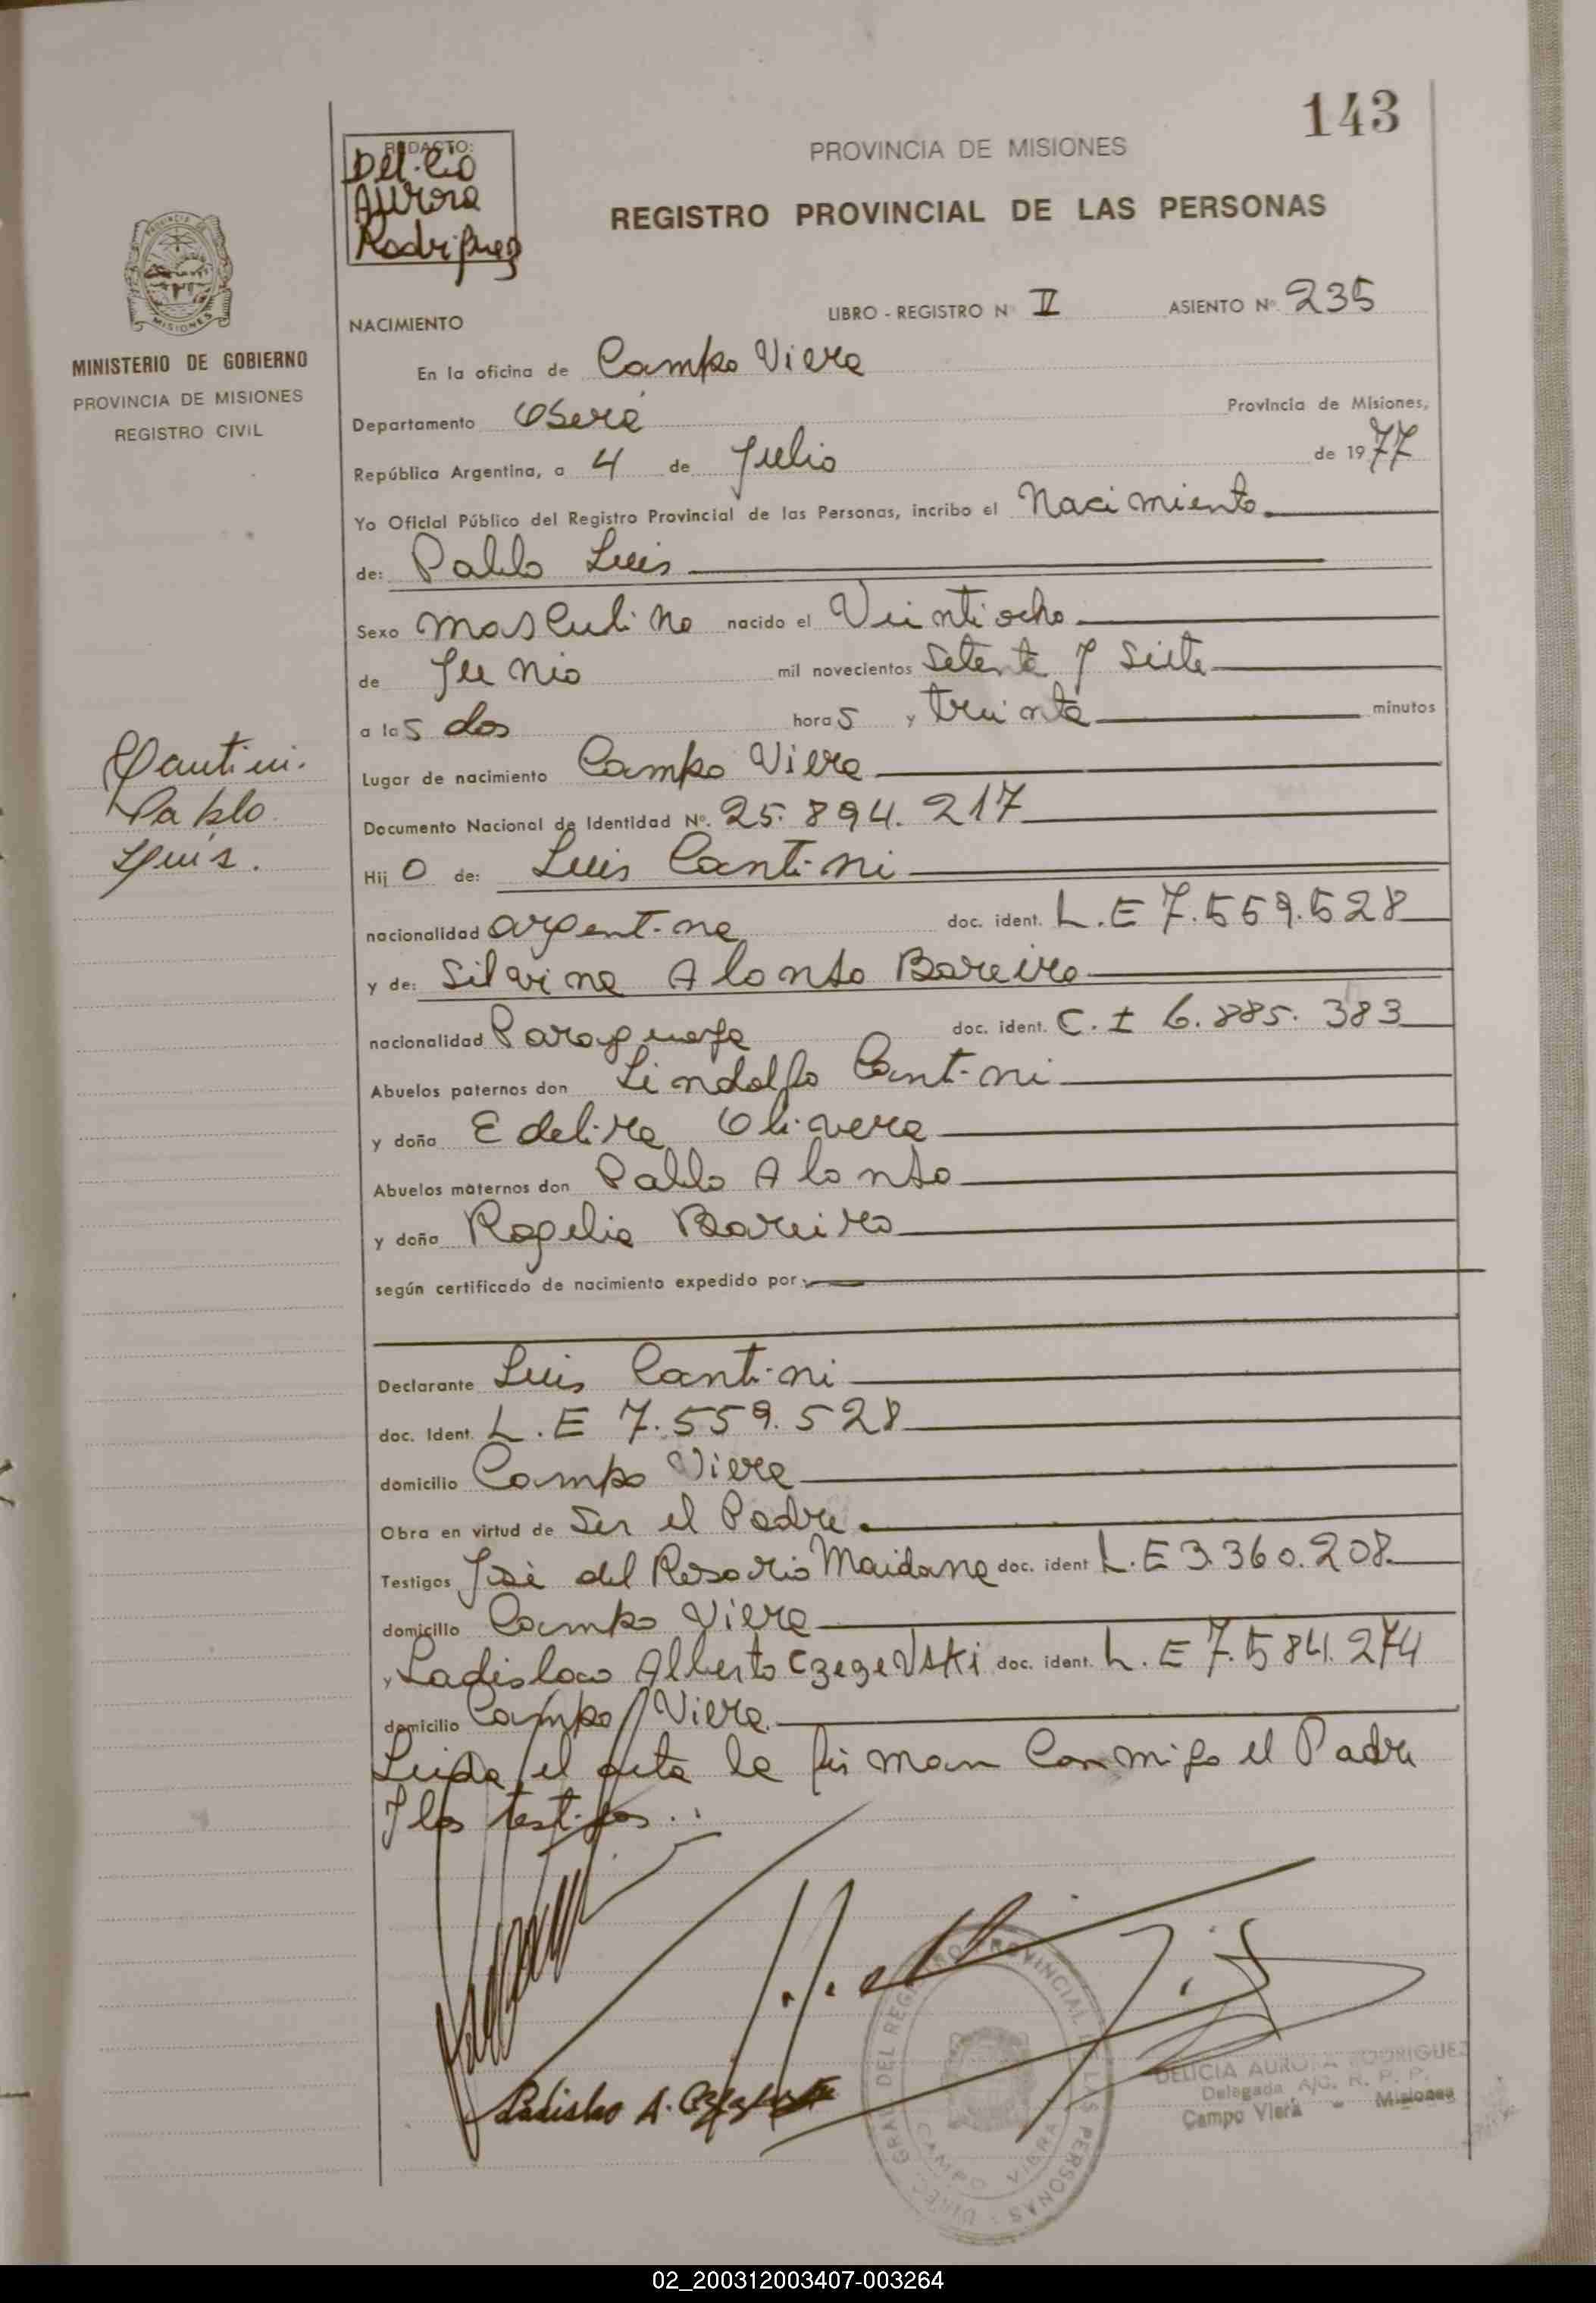 143
REDACTO:
Del.cia
Aurora
Rodriguez
PROVINCIA DE MISIONES
REGISTRO PROVINCIAL DE LAS PERSONAS
MISIONES
MINISTERIO DE GOBIERNO
PROVINCIA DE MISIONES
REGISTRO CIVIL
NACIMIENTO
LIBRO - REGISTRO Nº II ASIENTO Nº 235
En la oficina de Campo Viera
Departamento Oberá Provincia de Misiones,
República Argentina, a 4 de Julio de 1977
Yo Oficial Público del Registro Provincial de las Personas, incribo el Nacimiento
de: Pablo Luis
Sexo Masculino nacido el Veintiocho
de Junio mil novecientos Setenta y Siete
a las dos horas y treinta minutos
Lugar de nacimiento Campo Viera
Documento Nacional de Identidad Nº. 25.894.217
Cantini.
Pablo
Luis.
Hijo de: Luis Cantini
nacionalidad argentina doc. ident. L.E 7.559.528
y de: Silvina Alonso Bareiro
nacionalidad Paraguaya doc. ident. C.I 6.885.383
Abuelos paternos don Lindolfo Cantini
y doña Edelira Olivera
Abuelos maternos don Pablo Alonso
y doña Rogelia Bareiro
según certificado de nacimiento expedido por:
Declarante Luis Cantini
doc. Ident. L.E 7.559.528
domicilio Campo Viera
Obra en virtud de Ser el Padre.
Testigos José del Rosario Maidana doc. ident L.E 3.360.208
domicilio Campo Viera
y Ladislao Alberto Czegevski doc. ident. L.E 7.584.274
domicilio Campo Viera
Leida el acta la firman Conmigo el Padre
y los testigos..
Ladislao A.
DIREC. GRAL DEL REGISTRO PROVINCIAL DE LAS PERSONAS
CAMPO VIERA
DELICIA AURORA RODRIGUEZ
Delegada A/C. R. P. P.
Campo Viera - Misiones
02_200312003407-003264